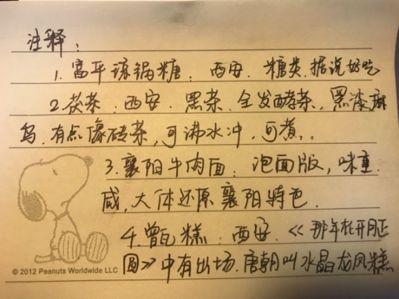 注释：
1. 富平琼锅糖：西安．糖类．据说好吃
2. 茯茶．西安．黑茶．全发酵茶．黑漆麻
乌．有点像砖茶，可沸水冲．可煮．．
3. 襄阳牛肉面：泡面版，味重．
咸，大体还原襄阳特色．
4. 甑糕：西安．《那年花开月正
圆》中有出场．唐朝叫水晶龙凤糕
© 2012 Peanuts Worldwide LLC